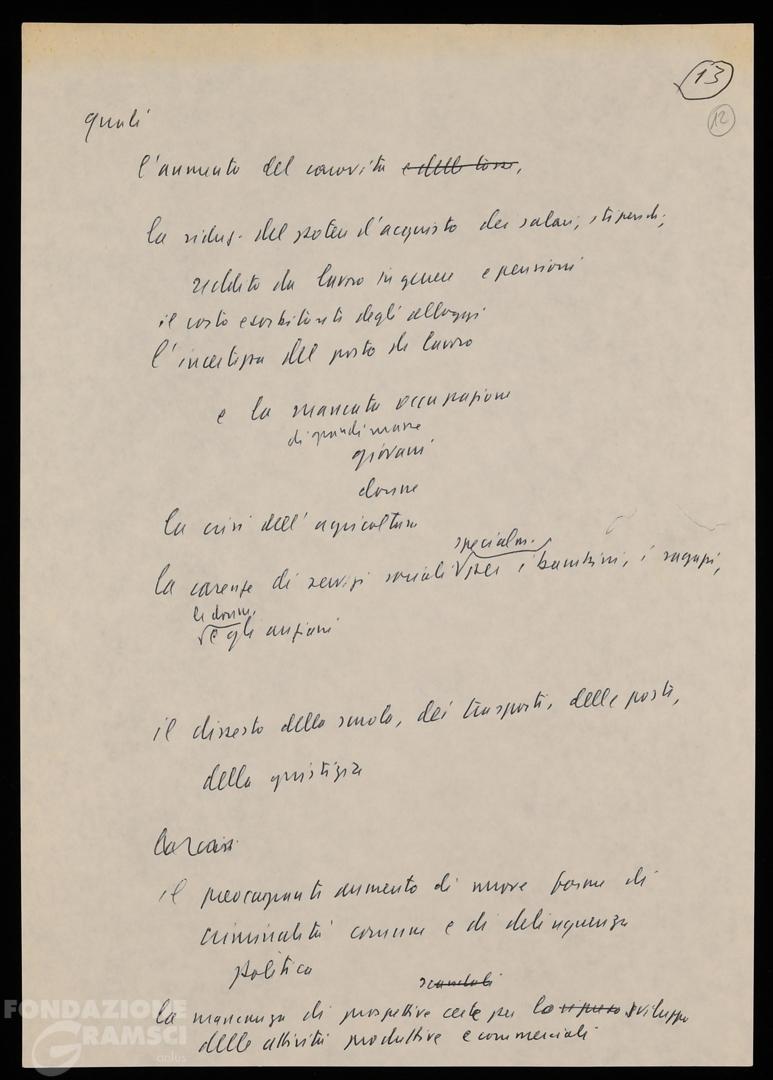 13
12
quali
l'aumento del carovita e delle tasse,
la riduz. del potere d'acquisto dei salari, stipendi,
reddito da lavoro in genere e pensioni
il costo esorbitante degli alloggi
l'incertezza del posto di lavoro
e la mancata occupazione
di grandi masse
giovani
donne
la crisi dell'agricoltura
specialm.
la carenza di servizi sociali per i bambini, i ragazzi,
le donne,
e gli anziani
il dissesto della scuola, dei trasporti, delle poste,
della giustizia
il preoccupante aumento di nuove forme di
criminalità comune e di delinquenza
politica
scandali
la mancanza di prospettive certe per lo sviluppo
delle attività produttive e commerciali
FONDAZIONE
GRAMSCI
onlus